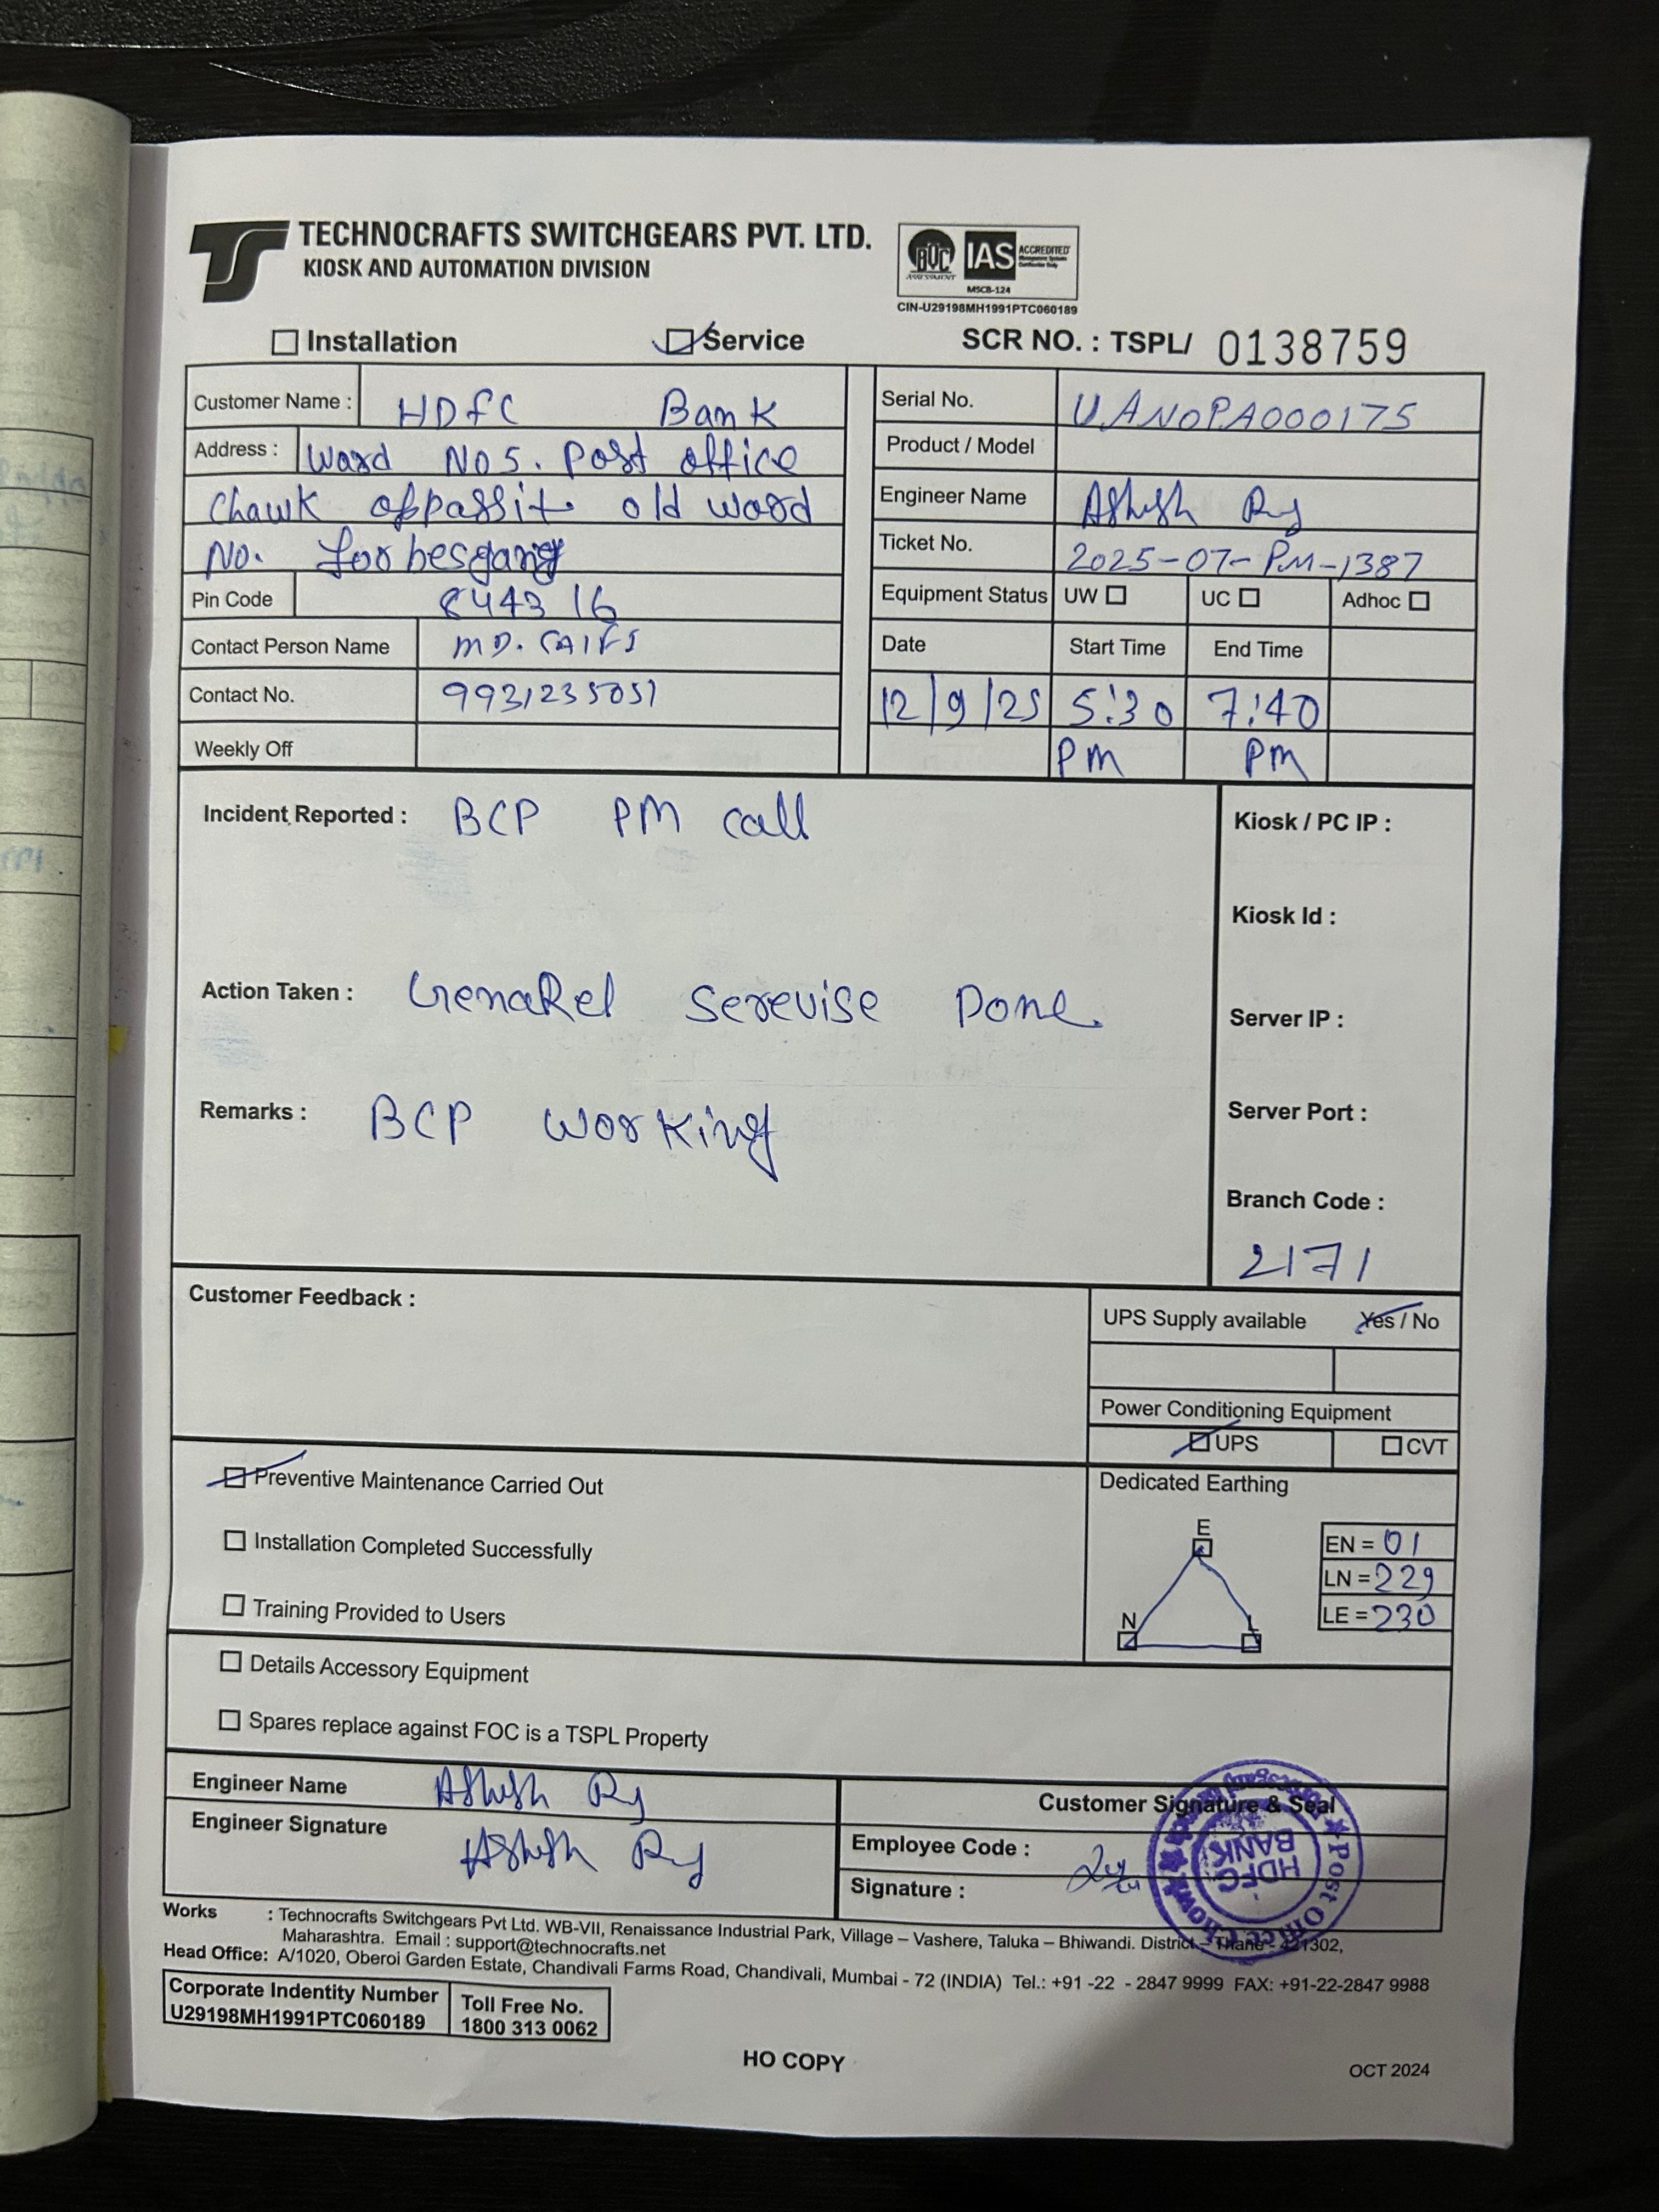 TECHNOCRAFTS SWITCHGEARS PVT. LTD.
KIOSK AND AUTOMATION DIVISION
BQC ASSESSMENT IAS ACCREDITED
MSCB-124
CIN-U29198MH1991PTC060189
Installation Service SCR NO. : TSPL/ 0138759
Customer Name : HDFC Bank
Address : Ward No 5. Post office
Chawk oppassit old word
No. Forbesganj
Pin Code 854316
Contact Person Name MD.
Contact No. 9931235051
Weekly Off
Serial No. UANOPA000175
Product / Model
Engineer Name Ashish Raj
Ticket No. 2025-07-PM-1387
Equipment Status UW UC Adhoc
Date Start Time End Time
12/9/25 5:30 7:40
PM PM
Incident Reported : BCP PM call
Action Taken : GenaRel Serevise Done
Remarks : BCP Working
Kiosk / PC IP :
Kiosk Id :
Server IP :
Server Port :
Branch Code :
2171
Customer Feedback :
UPS Supply available Yes / No
Power Conditioning Equipment
UPS CVT
Preventive Maintenance Carried Out
Installation Completed Successfully
Training Provided to Users
Dedicated Earthing
E
N L
EN = 01
LN = 229
LE = 230
Details Accessory Equipment
Spares replace against FOC is a TSPL Property
Engineer Name Ashish Raj
Engineer Signature Ashish Raj
Customer Signature & Seal
Employee Code :
Signature :
HDFC BANK
Post Office Chowk
Works : Technocrafts Switchgears Pvt Ltd. WB-VII, Renaissance Industrial Park, Village – Vashere, Taluka – Bhiwandi. District – Thane - 421302,
Maharashtra. Email : support@technocrafts.net
Head Office: A/1020, Oberoi Garden Estate, Chandivali Farms Road, Chandivali, Mumbai - 72 (INDIA) Tel.: +91 -22 - 2847 9999 FAX: +91-22-2847 9988
Corporate Indentity Number
U29198MH1991PTC060189
Toll Free No.
1800 313 0062
HO COPY
OCT 2024